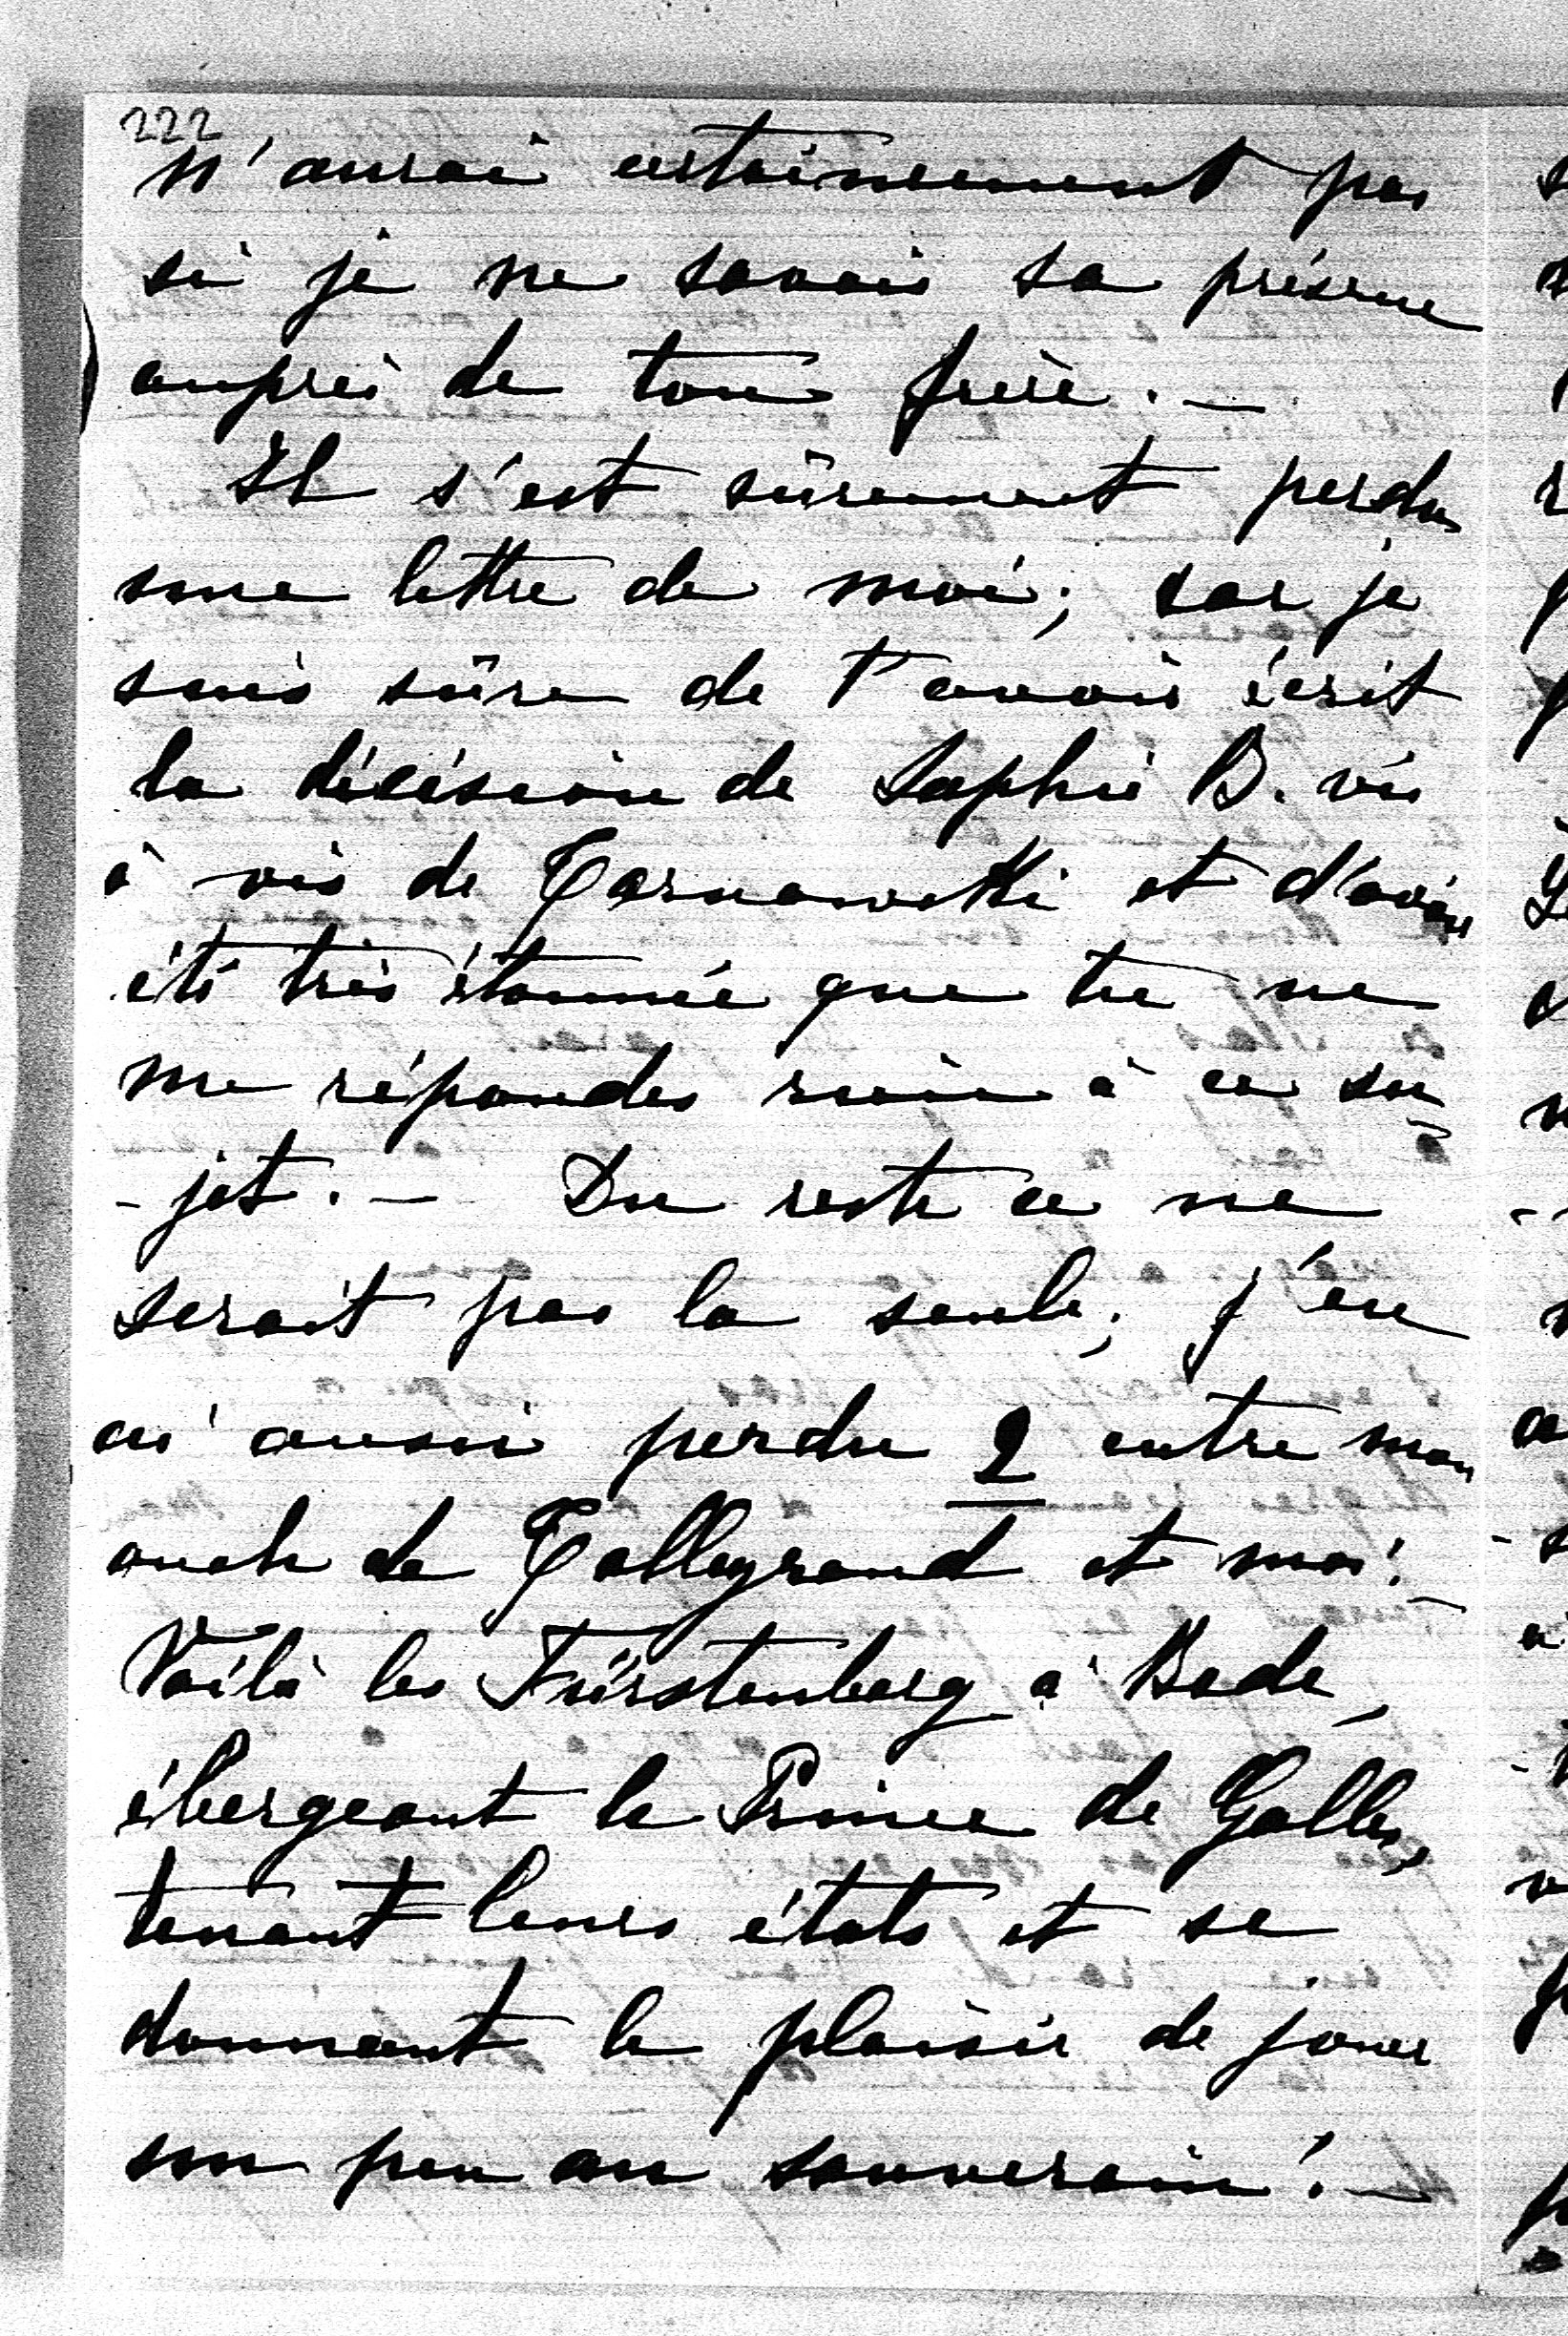 222
n'aurai certainement pas
si je ne savais sa présence
auprès de ton frère. —
Il s'est sûrement perdu
une lettre de moi; car je
suis sûre de t'avoir écrit
la décision de Sophie B. vis
à vis de Tarnowski et d'avoir
été très étonnée que tu ne
me répondes rien à ce su
- jet. — Du reste ce ne
serait pas la seule; j'en
ai aussi perdu 2 entre mon
oncle de Talleyrand et moi! —
Voilà les Fürstenberg à Bade,
ébergeant le Prince de Galles,
tenant leurs états et se
donnant le plaisir de jouer
un peu au souverain! —